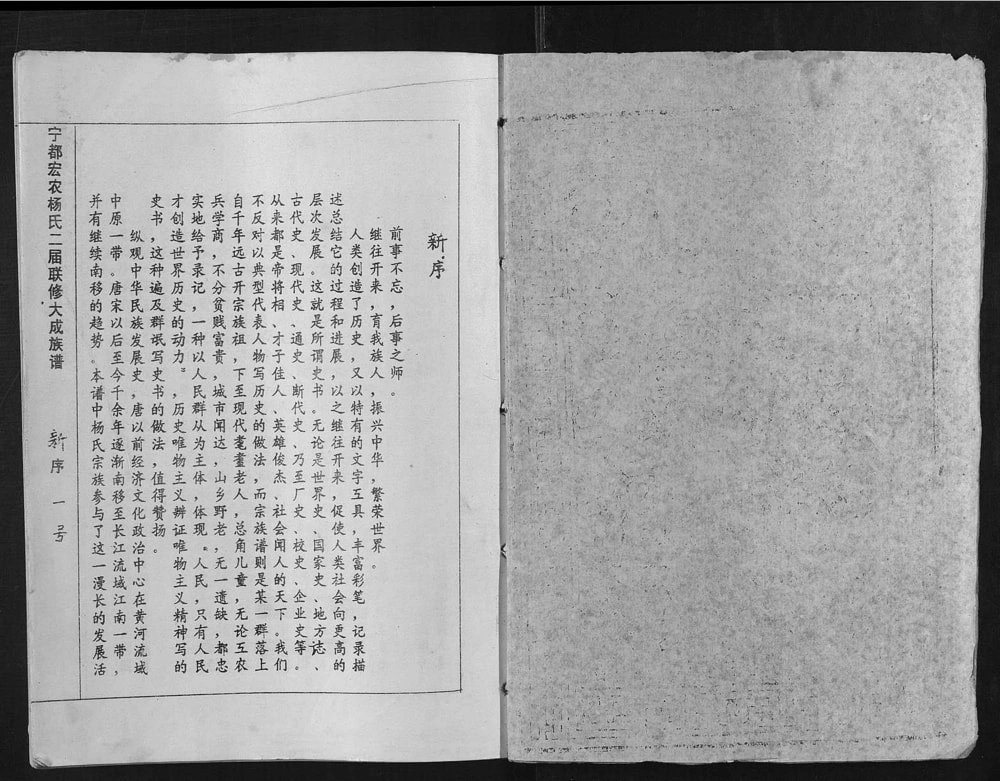 新序
前事不忘，后事之师。
继往开来，有我族人，振兴中华，繁荣世界。
人类创造了历史，又以特有的文字，互具，丰富彩笔，记录描
述总结它的过程和进展，以之继往开来，促使人类社会向更高的
层次发展。这就是所谓史书。无论是世界史、国家史、地方志、
古代史、现代史、通史、断代史、乃至厂史、校史、企业史等。
从来都是帝将相、才子佳人、英雄俊杰、社会闻人的天下。我们
不反对以典型代表人物写历史的做法，而宗族谱则是某一群落上
自千年远古开宗族祖，下至现代耄耋老人，总角儿童，无论互农
兵学商，不分贫贱富贵，城市闻达，山乡野老，无一遗缺，都忠
实地给予录记，一种以人民群从为主体，体现“人民，只有人民
才创造世界历史的动力”，历史唯物主义辨证唯物主义精神写的
史书，这种遍及群氓写史书的做法，值得赞扬。
纵观中华民族发展史，唐以前经济文化政治中心在黄河流域
中原一带。唐宋以后至今千余年逐渐南移至长江流域江南一带，
并有继续南移的趋势。本谱中杨氏宗族参与了这一漫长的发展活
宁都宏农杨氏二届联修大成族谱 新序 一号